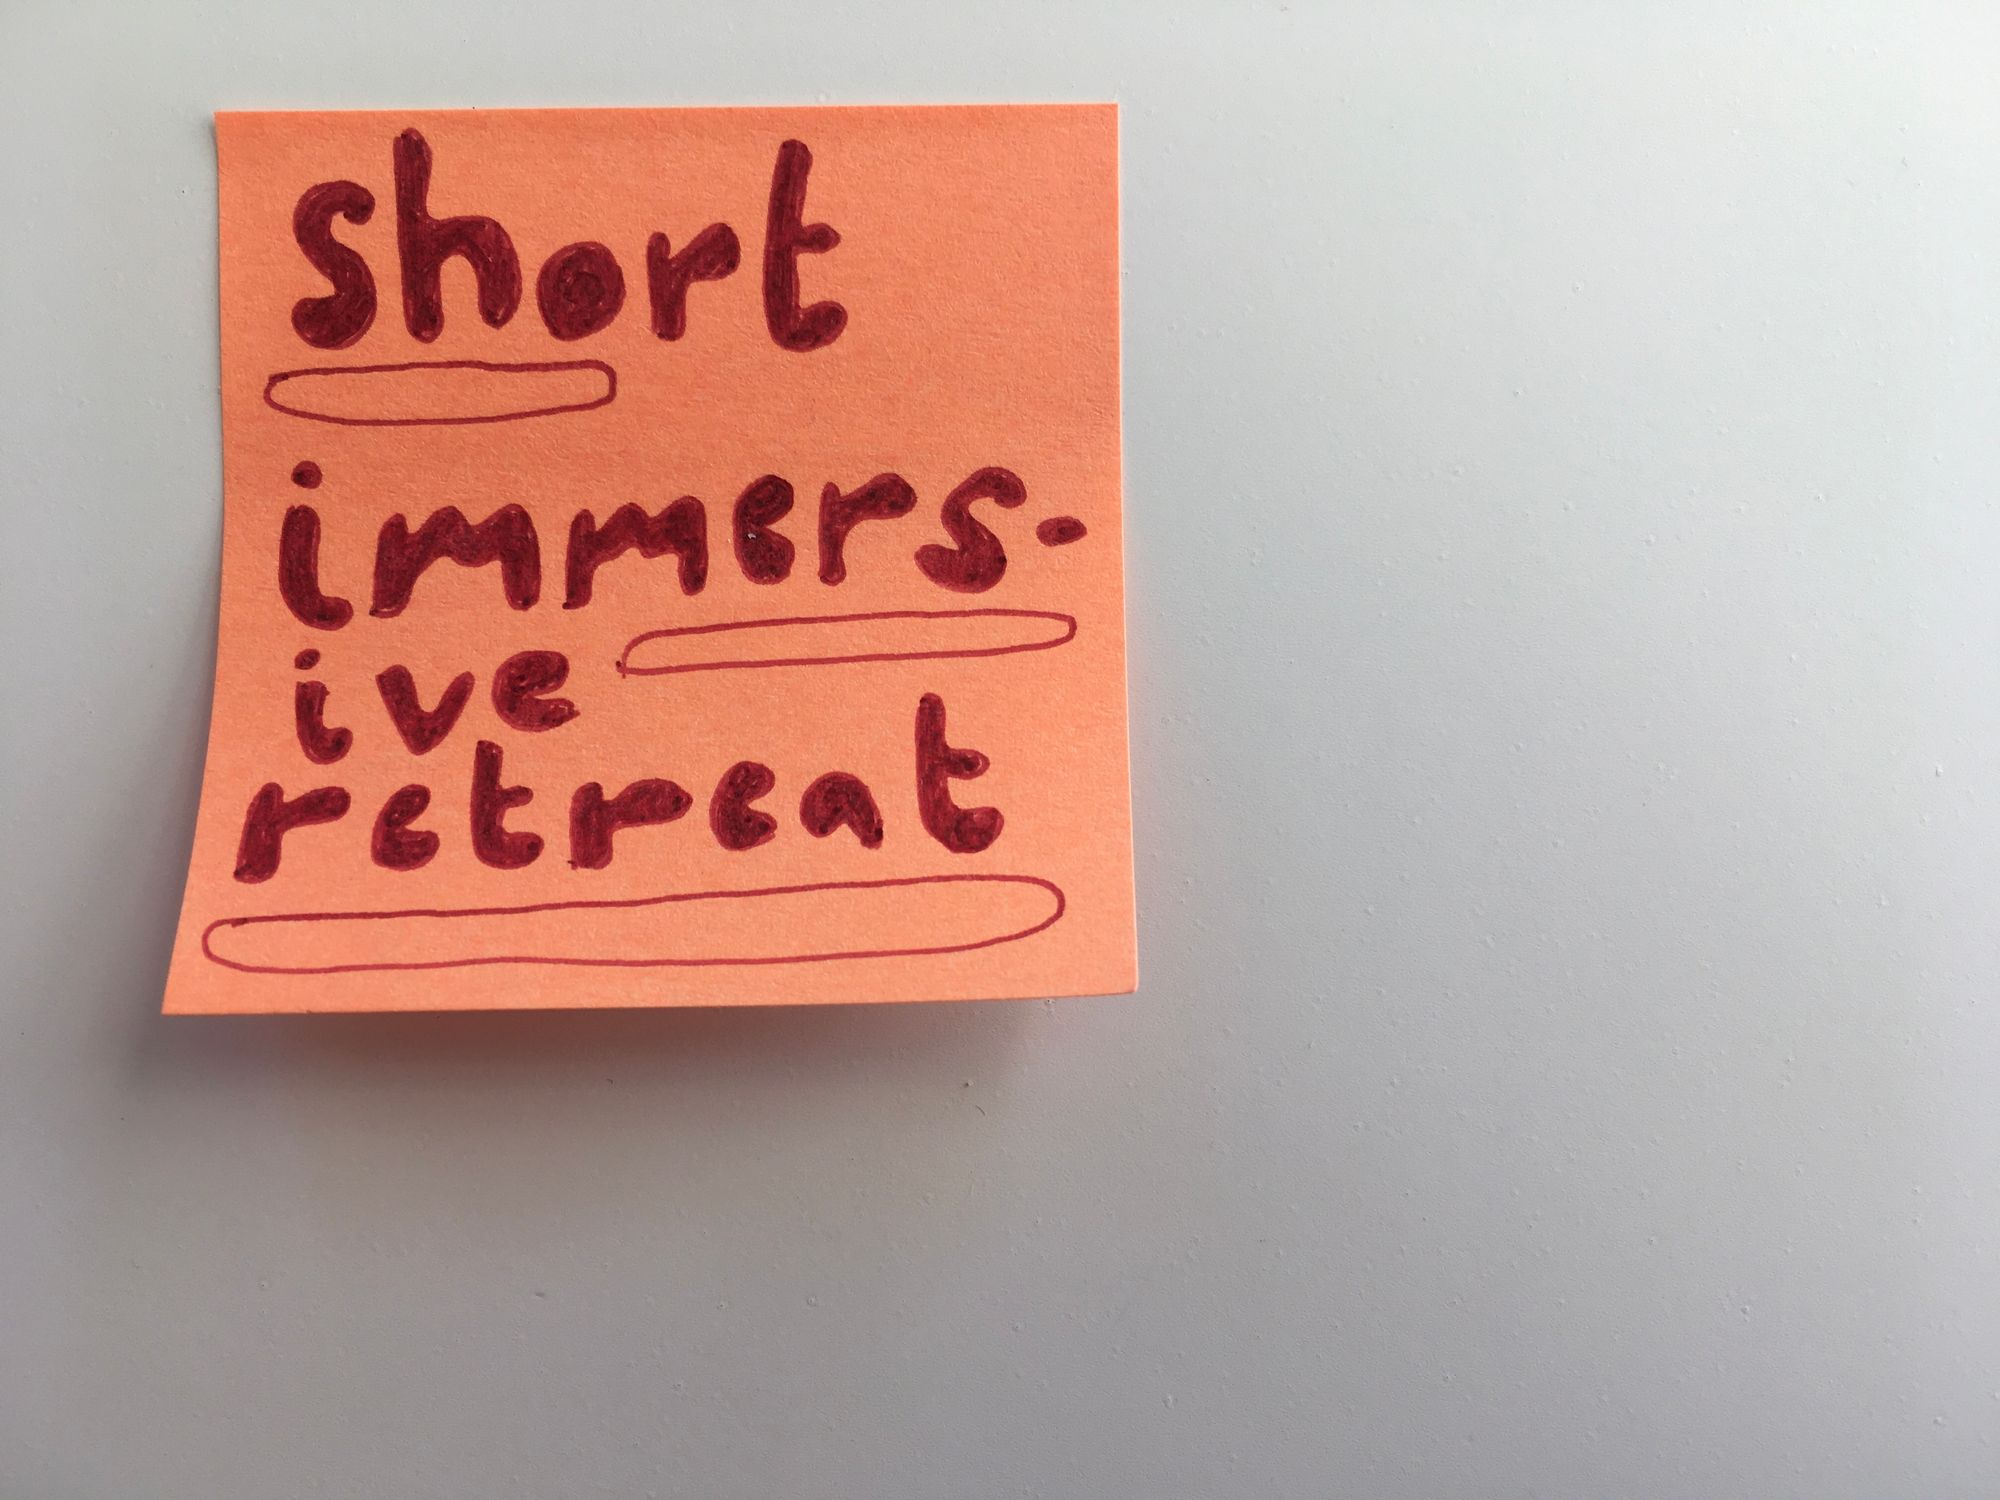 short
immers-
ive
retreat